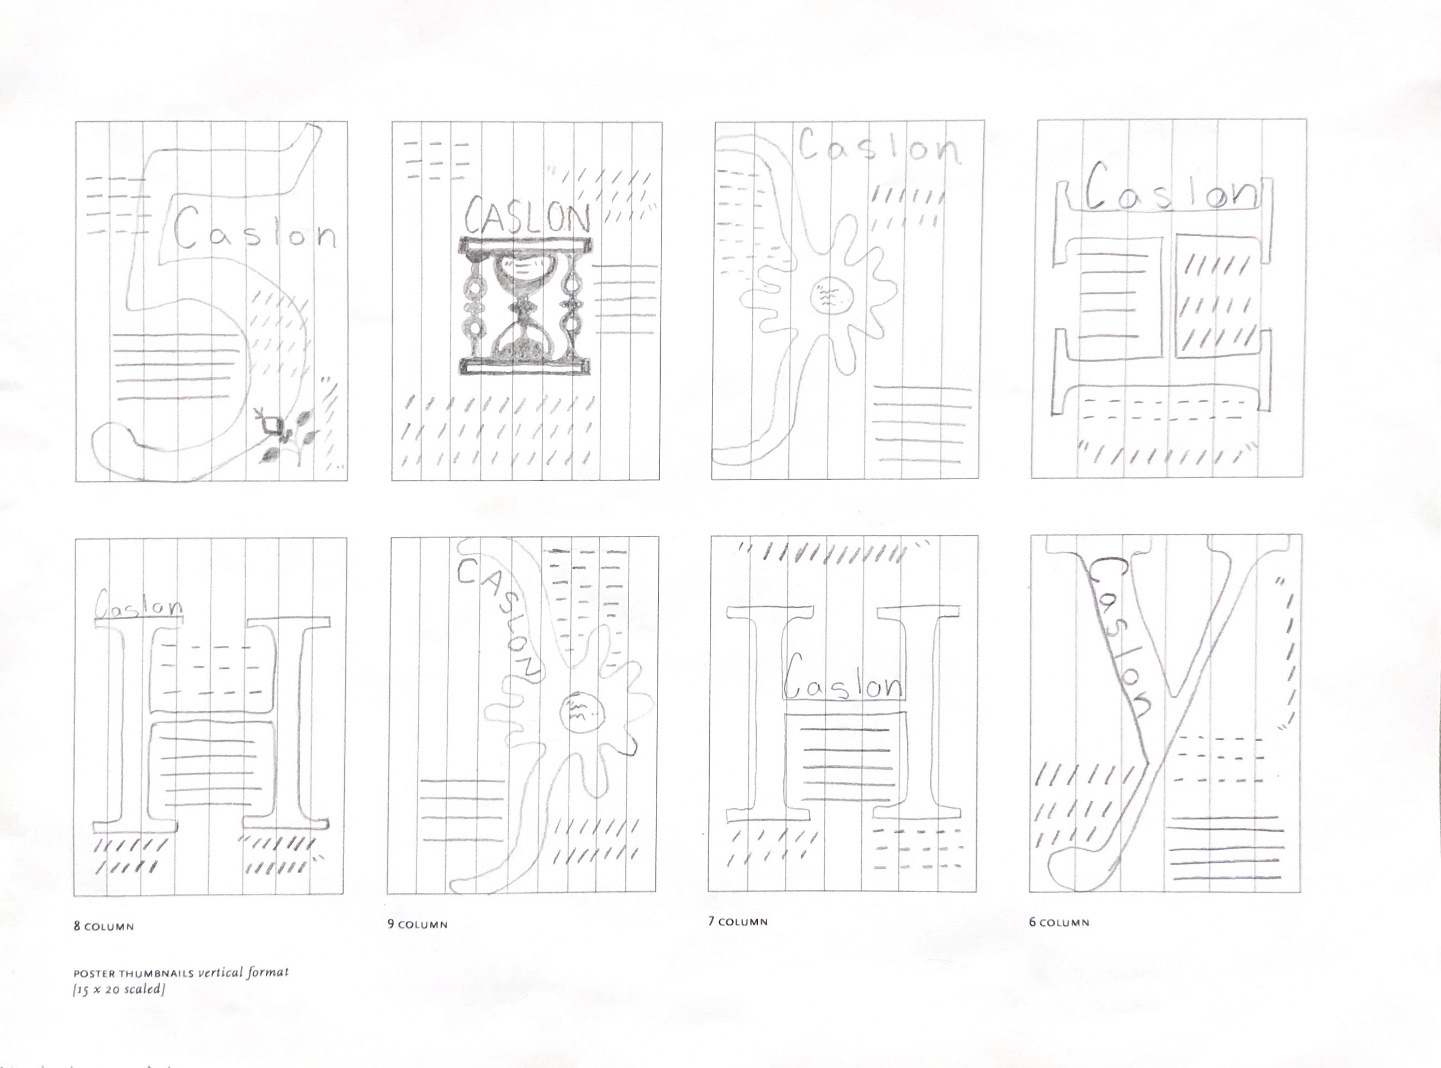 Caslon
CASLON
Caslon
Caslon
Caslon
CASLON
Caslon
Caslon
8 COLUMN
9 COLUMN
7 COLUMN
6 COLUMN
POSTER THUMBNAILS vertical format
[15 x 20 scaled]